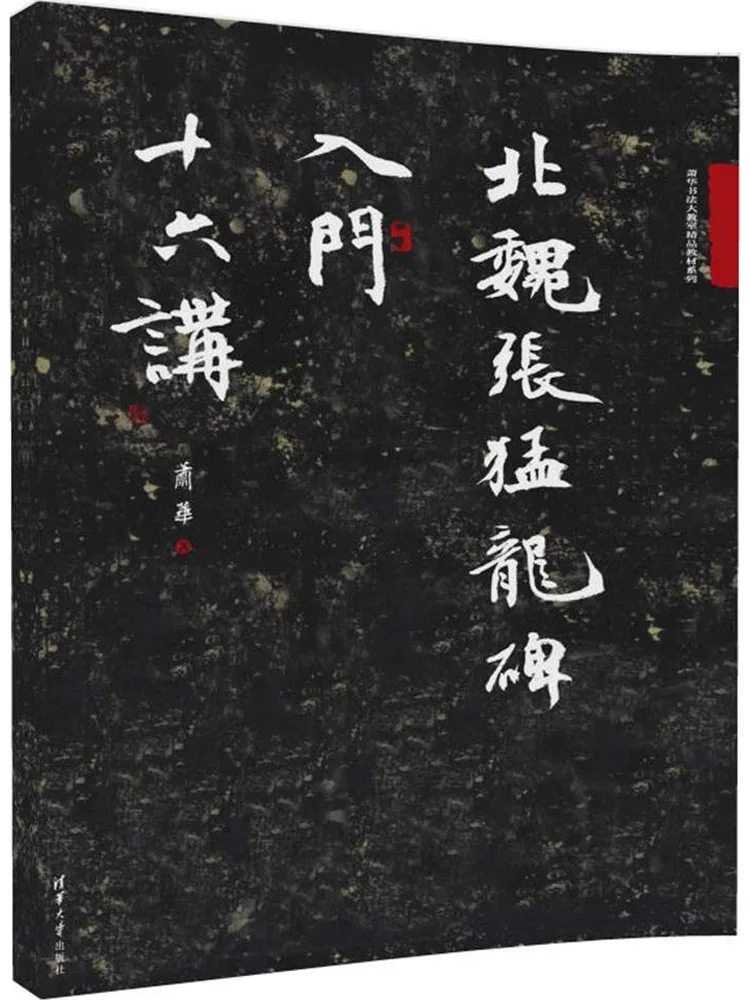 萧华书法大教室精品教材系列
北魏張猛龍碑
入門
十六講
蕭華
清华大学出版社